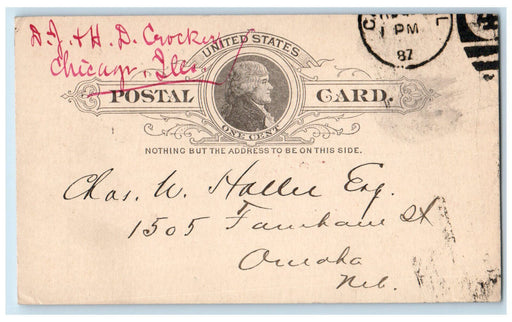 D. J. & H. D. Crocker
Chicago, Ills
UNITED STATES
POSTAL CARD.
ONE CENT
NOTHING BUT THE ADDRESS TO BE ON THIS SIDE.
1 PM
87
Chas. W. Haller Esq.
1505 Farnham St
Omaha
Neb.